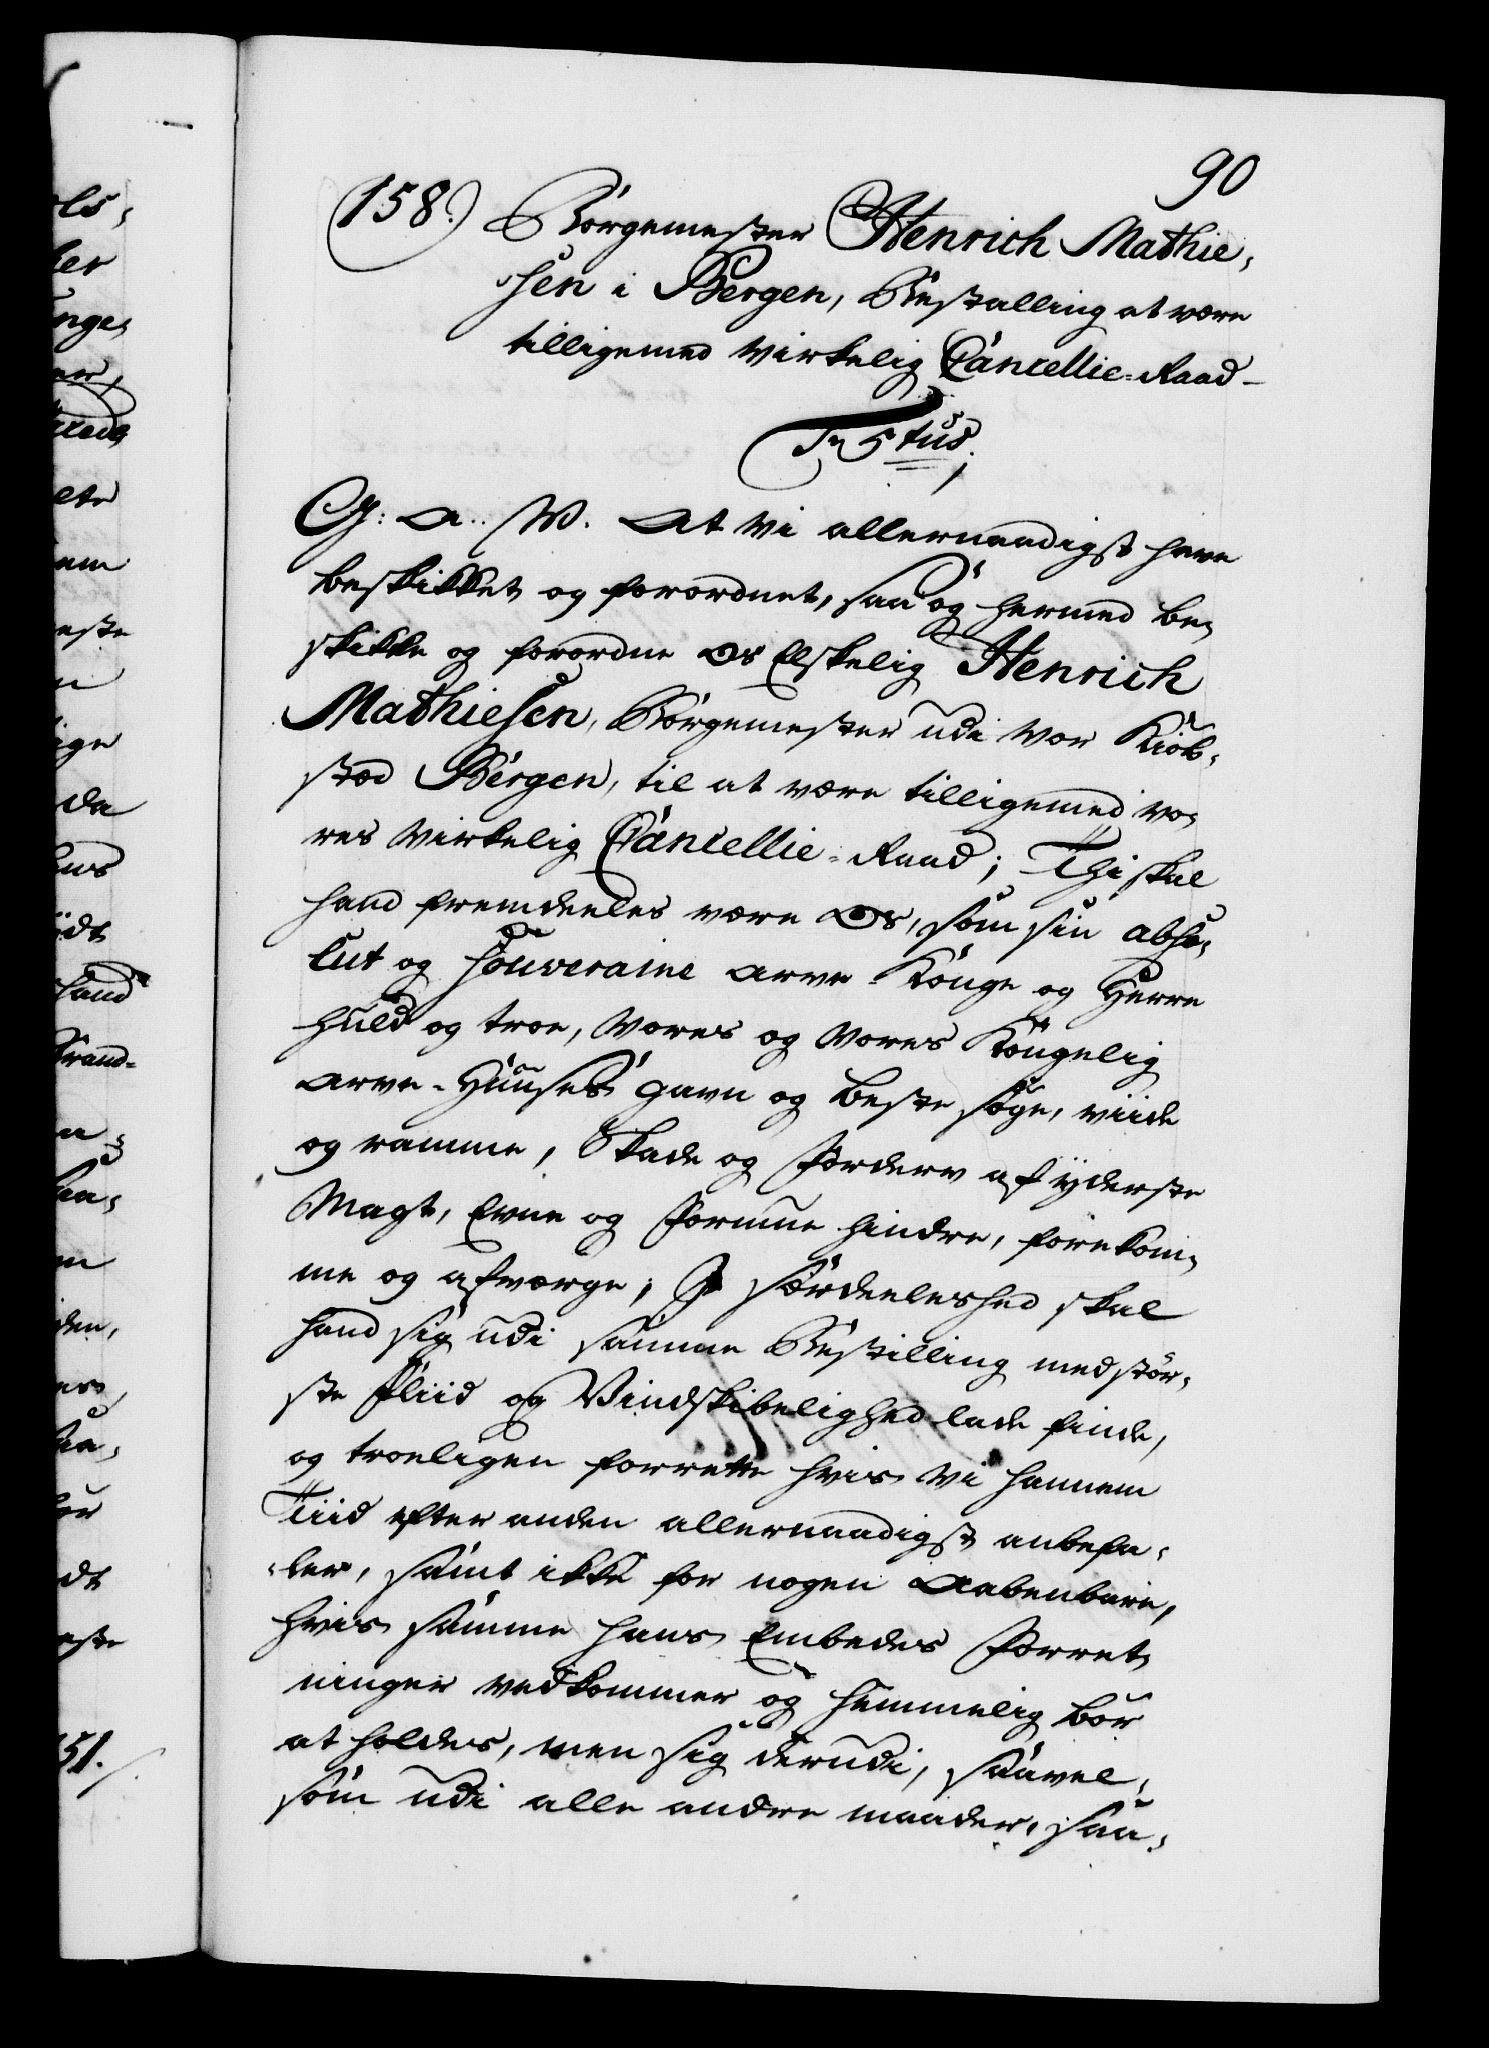 90
(158.) Borgemester Henrich Mathie-
sen i Bergen, Bestalling at være
tilligemed virkelig Cancellie-Raad
Titus.
G: A: W. At Vi allernaadigst have
beskikket og forordnet, saa og hermed be-
skikke og forordne Os Elskelig Henrich
Mathiesen, Borgemester udi vor Kiøb-
stæd Bergen, til at være tilligemed vo-
res virkelig Cancellie-Raad; Thi skal
hand fremdeeles være Os, som sin abso-
lut og souveraine Arve-Konge og Herre
huld og troe, Vores og Vores Kongelig
Arve-Huuses gavn og beste søge, viide
og ramme, Skade og Forderv af yderste
Magt, Evne og Formue hindre, forekom-
me og afværge; I særdeeleshed skal
hand sig udi samme Bestilling med stør-
ste Fliid og Vindskibelighed lade finde,
og troeligen forrette hvis Vi hannem
Tiid efter anden allernaadigst anbefa-
ler, samt ikke for nogen Aabenbare,
hvis samme hans Embedes Forret-
ninger vedkommer og hemmelig bør
at holdes, men sig derudi, saavel-
som udi alle andre maader, saa-
ols-
ler
unge-
er,
lte
em
este
n
ige
da
ans
iidt
hand
Brand-
a-
saa-
en
den,
es,
saa-
for
dt
este
51.